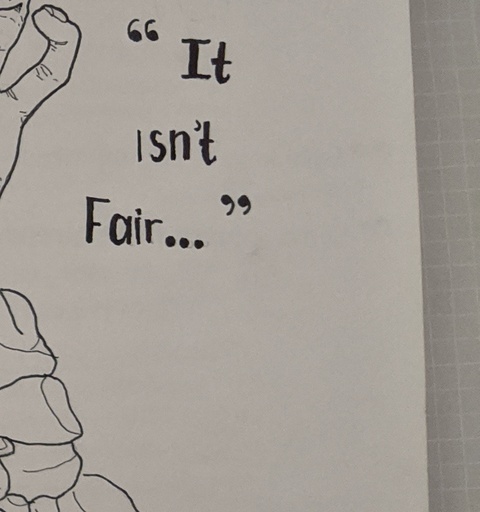 “ It
isn't
Fair... ”